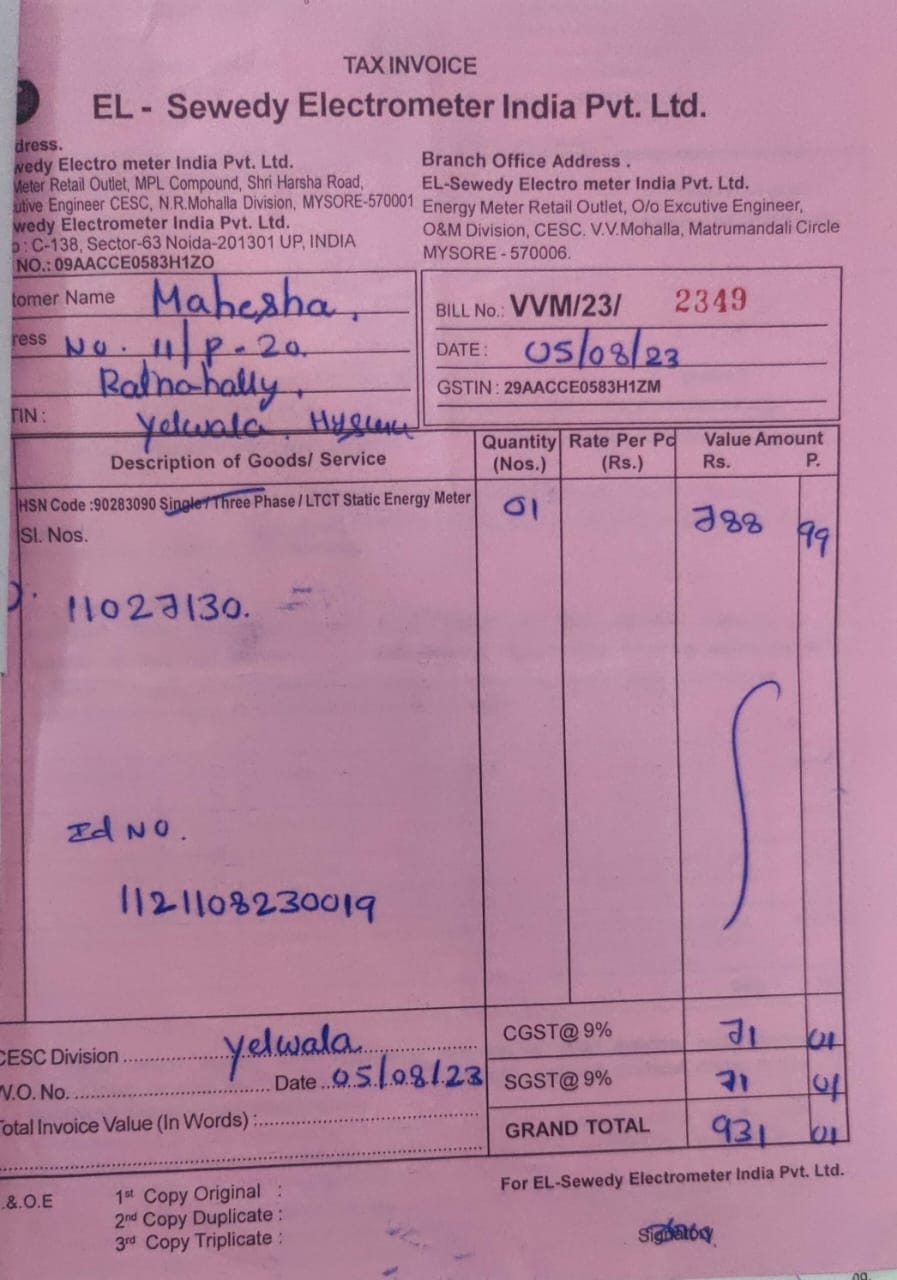 TAX INVOICE
EL - Sewedy Electrometer India Pvt. Ltd.
dress.
wedy Electro meter India Pvt. Ltd.
Meter Retail Outlet, MPL Compound, Shri Harsha Road,
utive Engineer CESC, N.R.Mohalla Division, MYSORE-570001
wedy Electrometer India Pvt. Ltd.
: C-138, Sector-63 Noida-201301 UP, INDIA
NO.: 09AACCE0583H1ZO
Branch Office Address .
EL-Sewedy Electro meter India Pvt. Ltd.
Energy Meter Retail Outlet, O/o Excutive Engineer,
O&M Division, CESC. V.V.Mohalla, Matrumandali Circle
MYSORE - 570006.
tomer Name Mahesha,
ress No. 11/P-20.
Ratnahally,
TIN : Yelwala, Mysuru
BILL No.: VVM/23/ 2349
DATE : 05/08/23
GSTIN : 29AACCE0583H1ZM
Description of Goods/ Service Quantity (Nos.) Rate Per Pc (Rs.) Value Amount Rs. P.
HSN Code :90283090 Single / Three Phase / LTCT Static Energy Meter 01 788 99
Sl. Nos.
11027130.
Id NO.
1121108230019
CESC Division Yelwala
W.O. No. Date 05/08/23
Total Invoice Value (In Words) :
CGST@ 9% 71 01
SGST@ 9% 71 01
GRAND TOTAL 931 01
.&.O.E
1st Copy Original :
2nd Copy Duplicate :
3rd Copy Triplicate :
For EL-Sewedy Electrometer India Pvt. Ltd.
Signatory